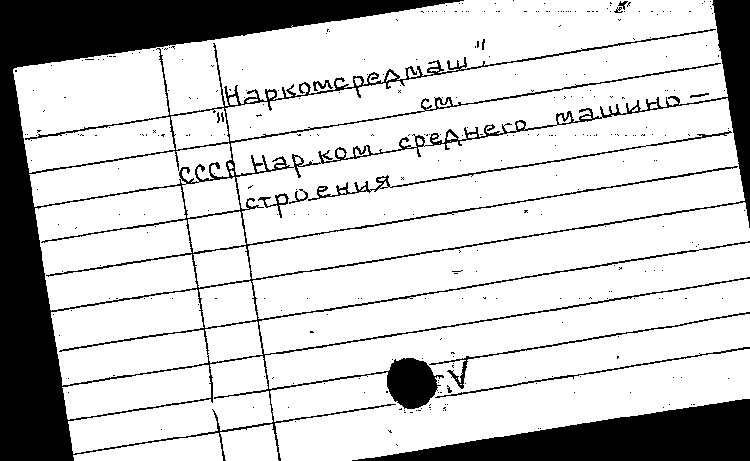 "Наркомсредмаш".
см.
СССР. Нар. ком. среднего машино-
строения
V